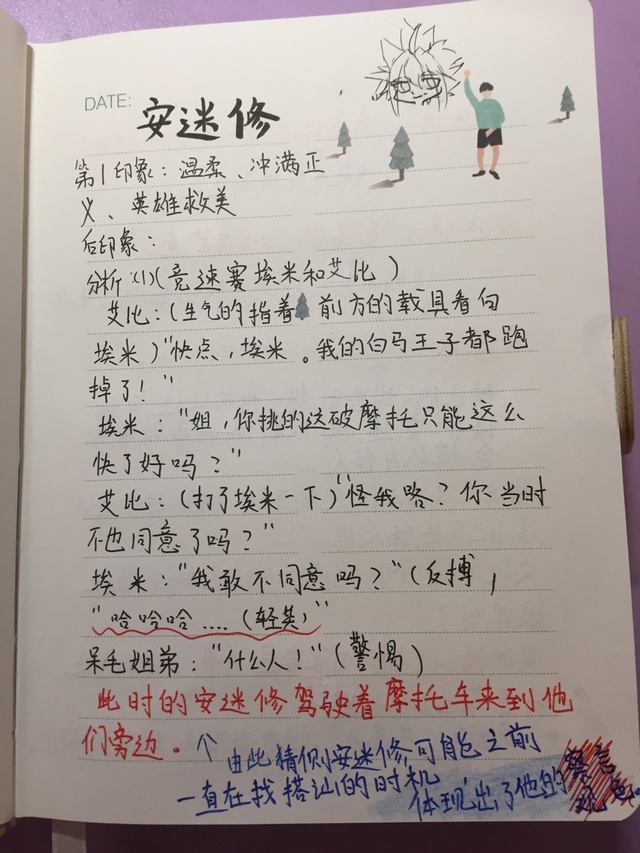 DATE:
安迷修
第1印象：温柔、冲满正
义、英雄救美
后印象：
分析：(1)(竞速赛埃米和艾比）
艾比：（生气的指着前方的载具看向
埃米）“快点，埃米。我的白马王子都跑
掉了！”
埃米：“姐，你挑的这破摩托只能这么
快了好吗？”
艾比：（打了埃米一下）“怪我咯？你当时
不也同意了吗？”
埃米：“我敢不同意吗？”（反搏，
“哈哈哈....（轻笑）”
呆毛姐弟：“什么人！”（警惕）
此时的安迷修驾驶着摩托车来到他
们旁边。↑由此猜侧安迷修，可能之前
一直在找搭讪的时机，
体现出了他的